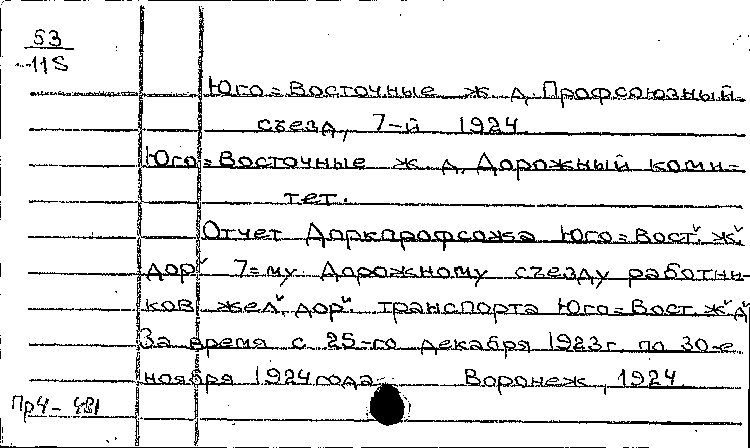 53
115
Юго=Восточные ж. д. Профсоюзный
съезд, 7-й 1924.
Юго=Восточные ж. д. Дорожный коми=
тет.
Отчет Доркпрофсожа Юго=Вост. ж.
дор. 7=му Дорожному съезду работни=
ков жел. дор. транспорта Юго=Вост. ж. д.
За время с 25-го декабря 1923г. по 30-е
ноября 1924 года. Воронеж, 1924
Пр4-481